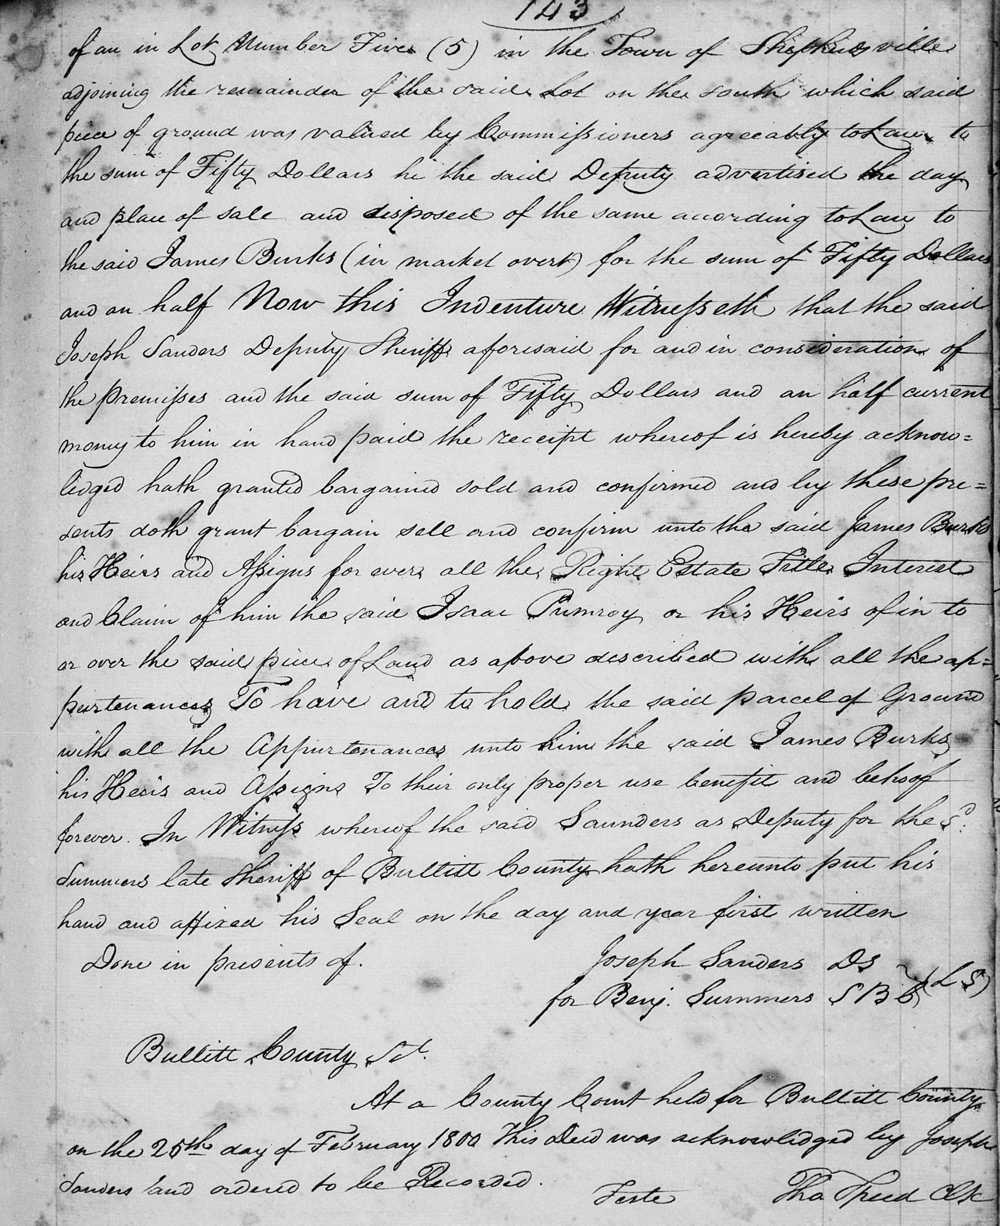 143
of an in Lot Number Five (5) in the Town of Shepherdsville
adjoining the remainder of the said Lot on the south which said
piece of ground was valued by Commissioners agreeably to Law to
the sum of Fifty Dollars he the said Deputy advertised the day
and place of sale and disposed of the same according to Law to
the said James Burks (in market overt) for the sum of Fifty Dollars
and an half Now this Indenture Witnesseth that the said
Joseph Sanders Deputy Sheriff aforesaid for and in consideration of
the premisses and the said sum of Fifty Dollars and an half current
money to him in hand paid the receipt whereof is hereby acknow=
ledged hath granted bargained sold and confirmed and by these pre=
sents doth grant bargain sell and confirm unto the said James Burks
his Heirs and Assigns for ever all the Right Estate Title Interest
and Claim of him the said Isaac Pumroy or his Heirs of in to
or over the said piece of Land as above described with all the ap=
purtenances To have and to hold the said parcel of Ground
with all the Appurtenances unto him the said James Burks
his Heirs and Assigns To their only proper use benefit and behoof
forever. In Witness whereof the said Saunders as Deputy for the sd.
Summers late Sheriff of Bullitt County hath hereunto put his
hand and affixed his Seal on the day and year first written
Done in presents of. Joseph Sanders DS
for Benj. Summers S B C (L S)
Bullitt County Sct.
At a County Court held for Bullitt County
on the 25th day of February 1800 This Deed was acknowledged by Joseph
Sanders and ordered to be Recorded.
Teste Tho Speed Clk